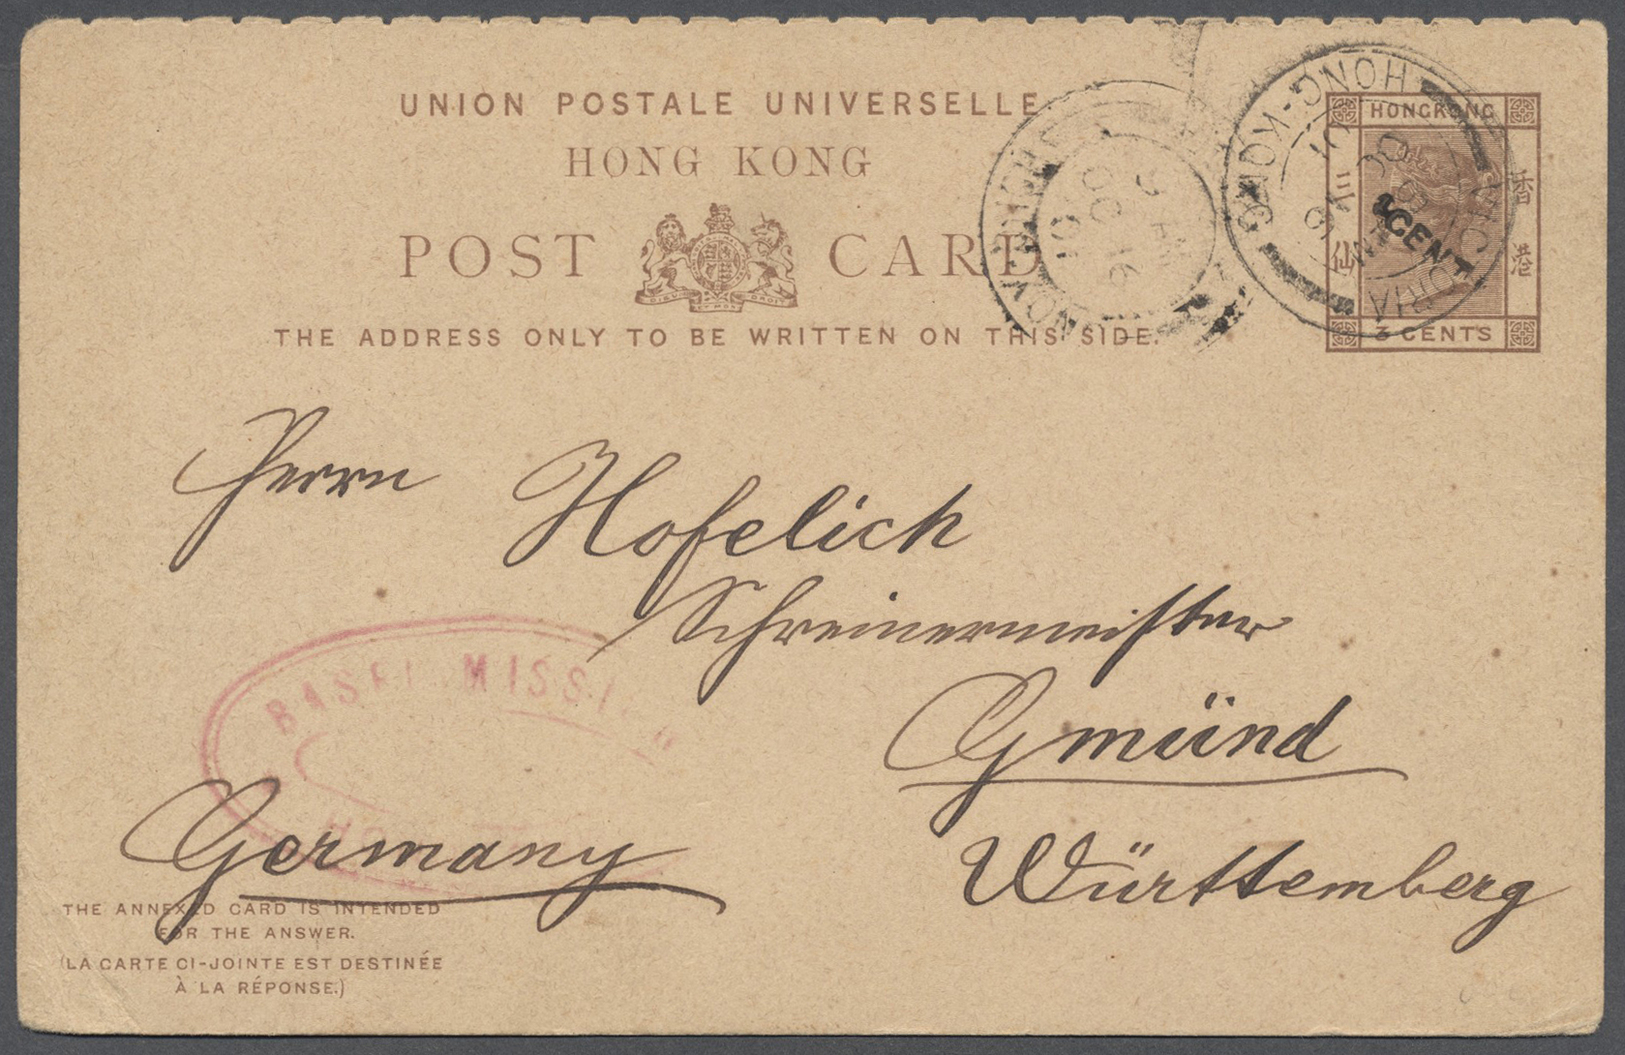 UNION POSTALE UNIVERSELLE
HONG KONG
POST CARD
THE ADDRESS ONLY TO BE WRITTEN ON THIS SIDE.
HONG-KONG
VICTORIA
HONGKONG
香港
三仙
CENT
3 CENTS
Herrn Hofelich
Schreinermeister
Gmünd
Württemberg
Germany
BASEL MISSI
THE ANNEXED CARD IS INTENDED
FOR THE ANSWER.
(LA CARTE CI-JOINTE EST DESTINÉE
À LA RÉPONSE.)